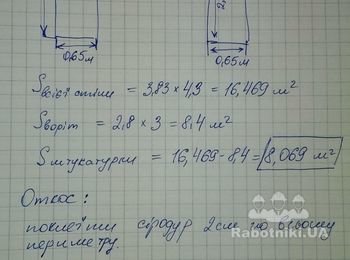 0,65м 0,65м
S всієї стіни = 3,83 × 4,3 = 16,469 м²
S воріт = 2,8 × 3 = 8,4 м²
S штукатурки = 16,469 - 8,4 = 8,069 м²
Откос:
поклеїти 2см по всьому
периметру.
Rabotniki.UA